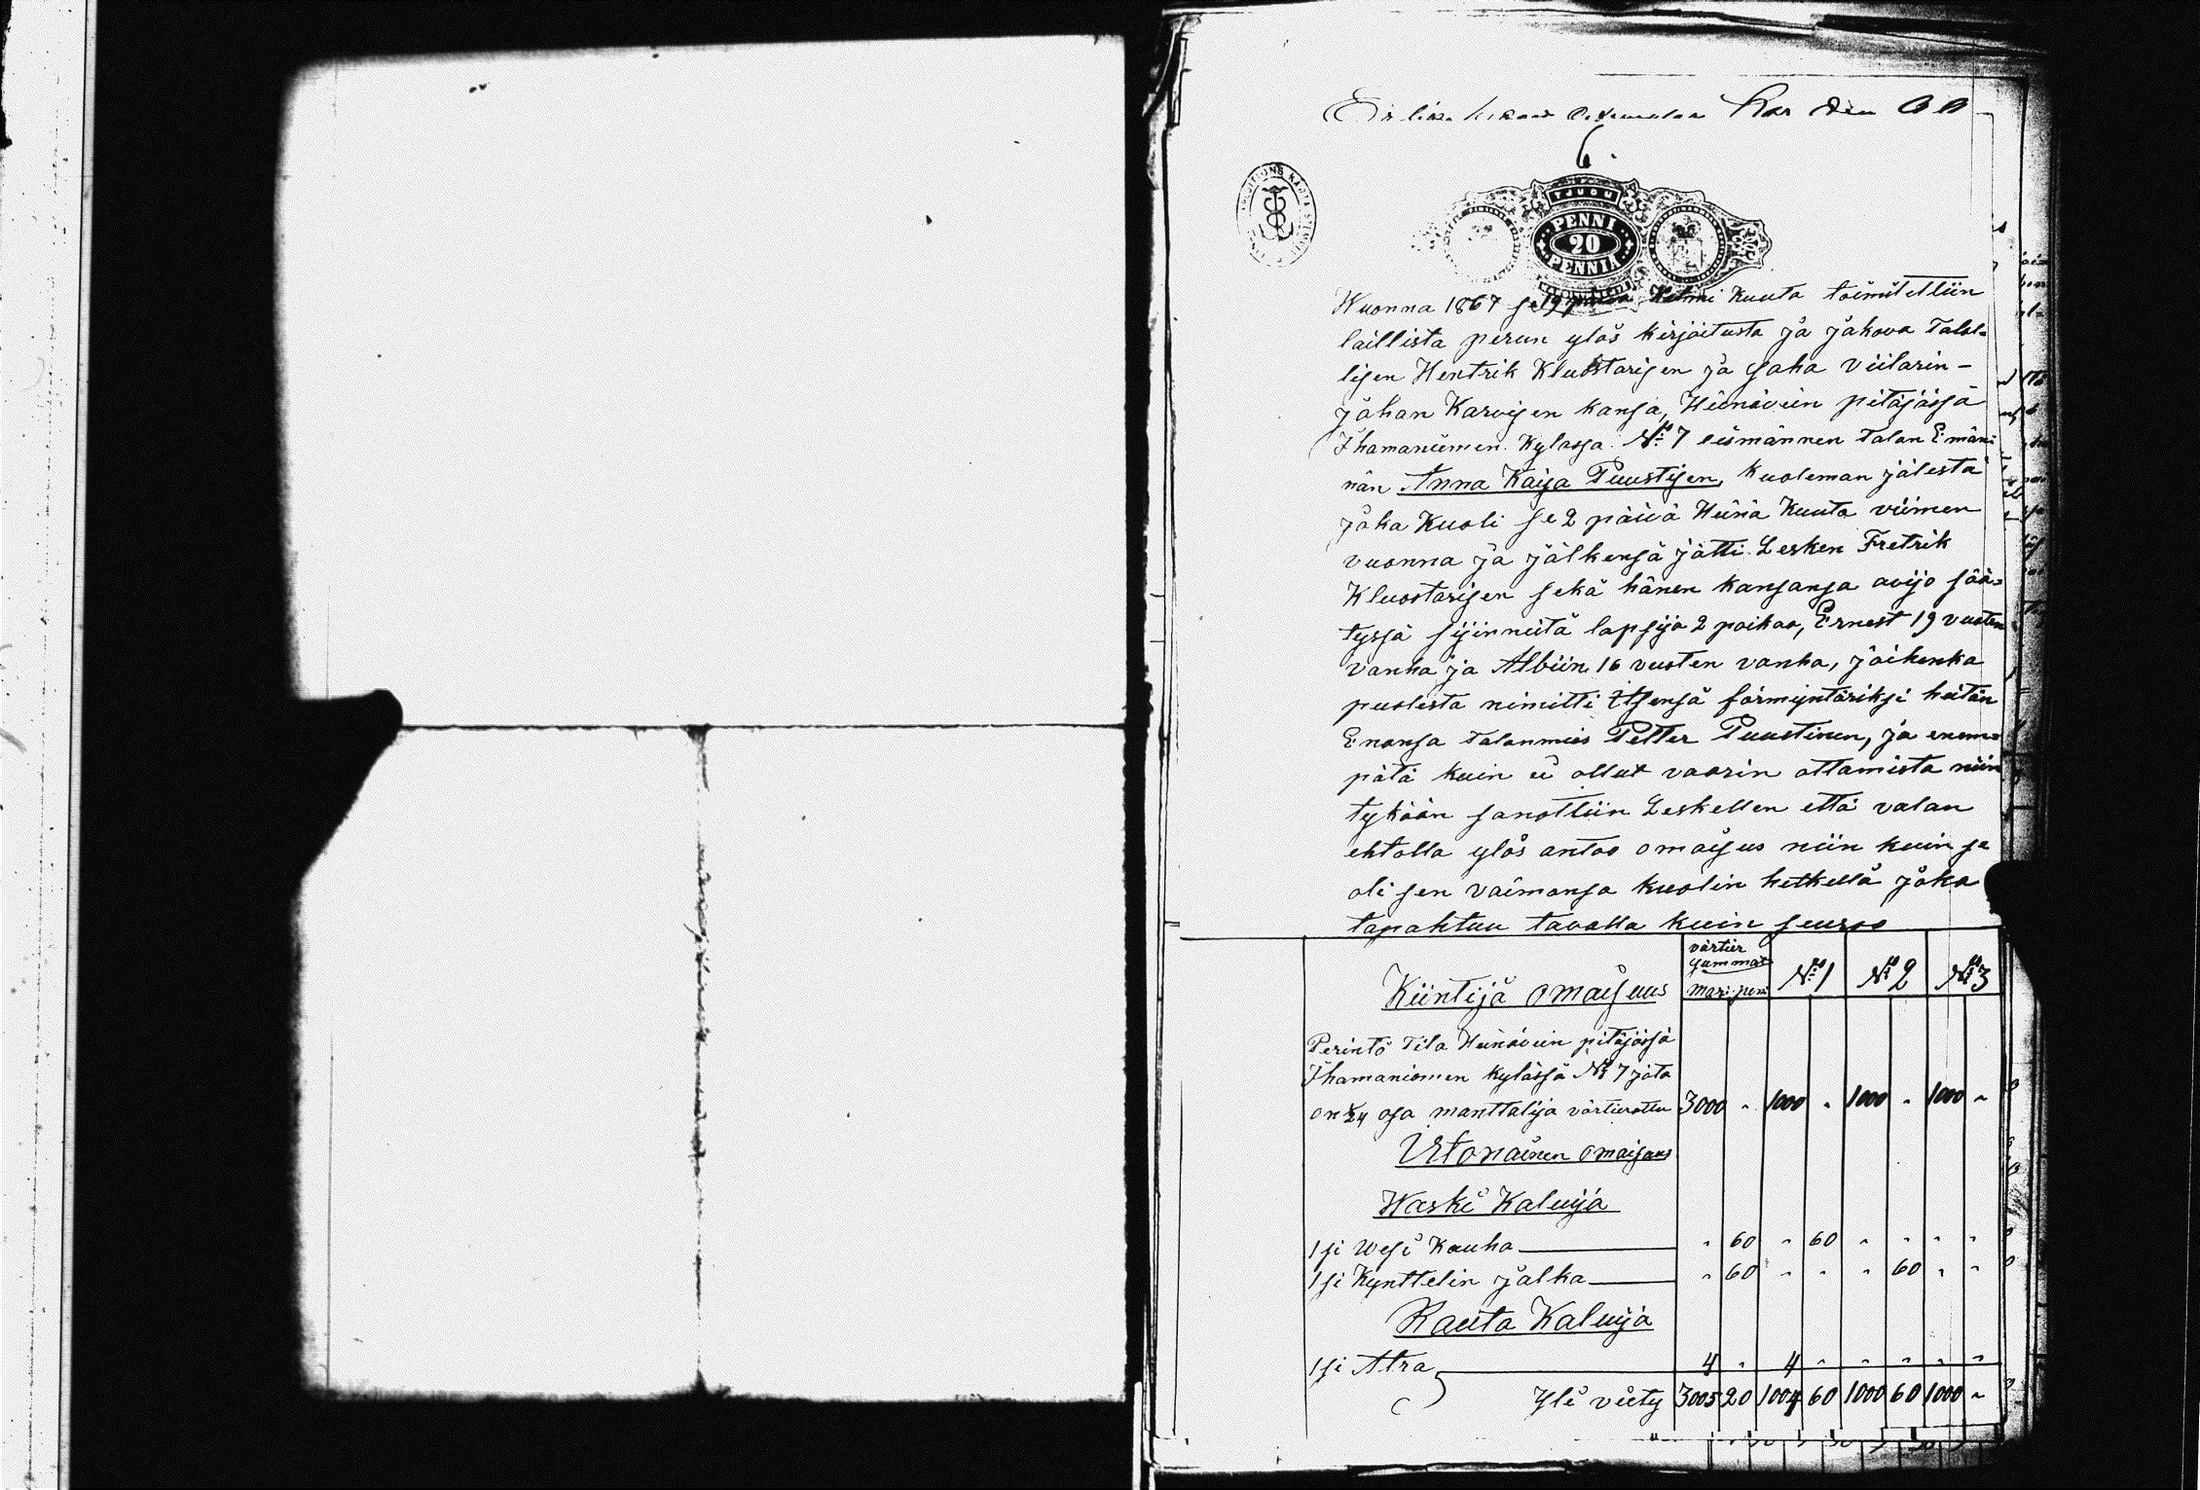 Kar den
6.
TJUGU
PENNI
20
PENNIÄ
Wuonna 1867 se 19 päivä Helmi Kuuta toimitettiin
laillista perun ylös kirjoitusta ja jakova Talol-
lisen Hentrik Kluostarisen ja saha viilarin-
Johan Karvisen kansa, Heinävein pitäjässä
Ihamaniemen Kylässä No 7 eismännen Talon Emän-
nän Anna Kaisa Puustisen, Kuoleman jälestä
joka Kuoli se 2 päivä Heinä Kuuta viimen
vuonna ja jälkensä jätti Lesken Fretrik
Kluostarisen sekä hänen kansansa avijo sää-
tyssä sijinneitä lapsija 2 poikaa, Ernest 19 vuoten
vanha ja Albiin 16 vuoten vanha, joihenka
puolesta nimitti itsensä förmyntäriksi heitän
Enonsa Talonmies Petter Puustinen, ja enem-
pätä kuin ei ollut vaarin ottamista niin
tykään sanottiin Leskellen että valan
ehtolla ylös antaa omaisus niin kuin se
oli sen vaimonsa kuolin hetkellä joka
tapahtuu tavalla kuin seuraa
Kiintijä omaisuus värtier summat No 1 No 2 No 3
mar: pen
Perintö Tila Heinävein pitäjässä
Ihamaniemen kylässä No 7 jota
on 1/24 osa manttalija värtierattu 3000 " 1000 " 1000 " 1000 "
Utonainen omaisuus
Waski Kaluija
1 si wesi Kauha " 60 " 60 " " " "
1 si Kynttelin jalka " 60 " " " 60 " "
Rauta Kaluija
1 si Atra 4 " 4 " " " " "
Yli viety 3005 20 1004 60 1000 60 1000 "